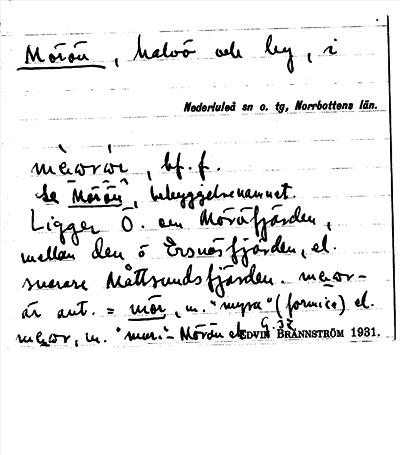 Mörön, halvö och by, i
Nederluleå sn o. tg, Norrbottens län.
bf. f.
Se Mörön, bebyggelsenamnet.
Ligger Ö. om Möröfjärden,
mellan den o Ersnäsfjärden, el.
snarare Måttsundsfjärden.
är ant. = mör, m. "myra" (formica) el.
m. "mur." Mörön
EDVIN BRÄNNSTRÖM 1931.